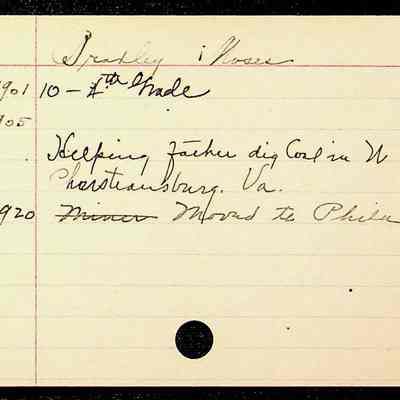 Bradley Moses
1901 10 - 4th Grade
1905
Helping father dig Coal in W
Christiansburg. Va.
1920 Miner Moved to Phila